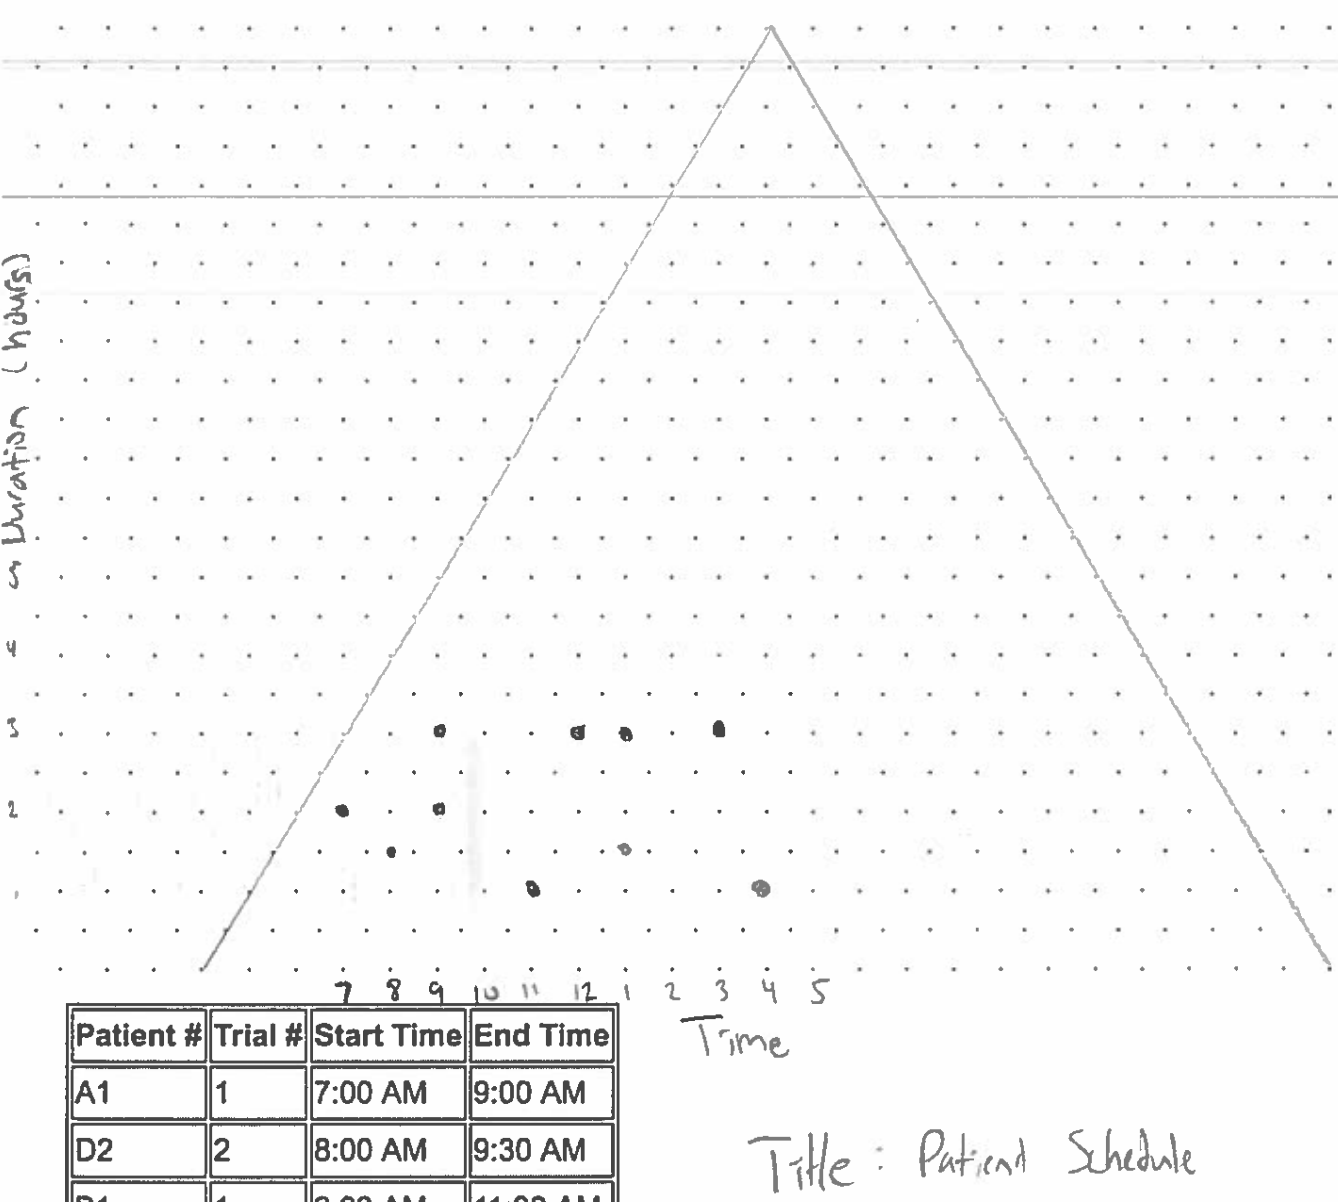 Duration (hours)
4
3
2
7 8 9 10 11 12 1 2 3 4 5
Time
Patient # Trial # Start Time End Time
A1 1 7:00 AM 9:00 AM
D2 2 8:00 AM 9:30 AM
Title: Patient Schedule